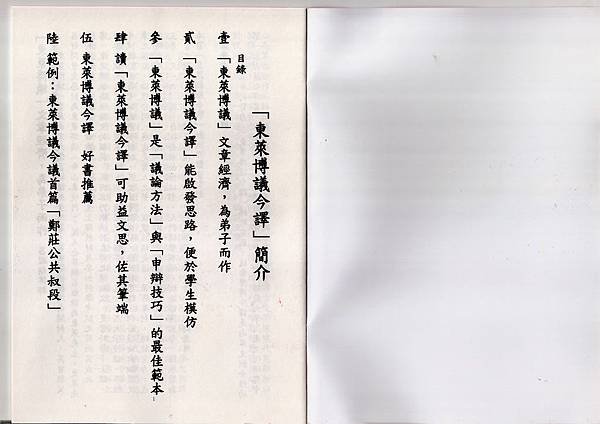 「東萊博議今譯」簡介
目錄
壹 「東萊博議」文章經濟，為弟子而作
貳 「東萊博議今譯」能啟發思路，便於學生模仿
參 「東萊博議」是「議論方法」與「申辯技巧」的最佳範本
肆 讀「東萊博議今譯」可助益文思，佐其筆端
伍 東萊博議今譯 好書推薦
陸 範例：東萊博議今議首篇「鄭莊公共叔段」